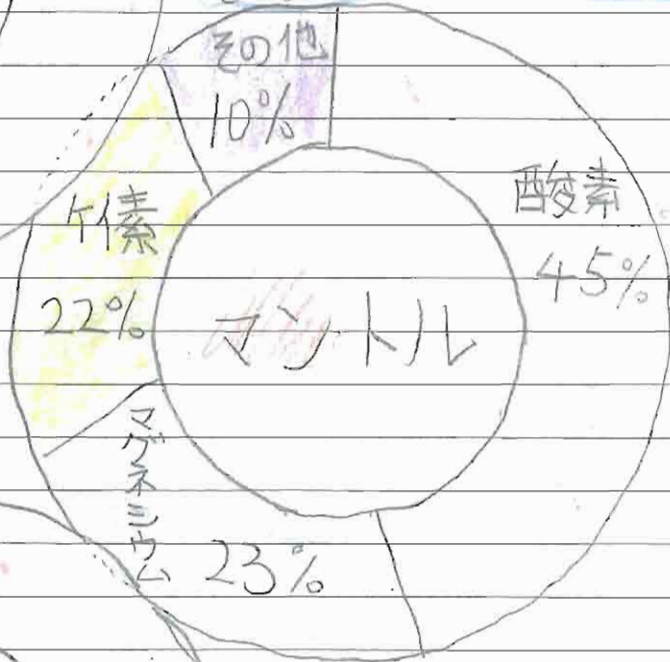 その他
10%
酸素
45%
ケイ素
22%
マントル
マグネシウム
23%